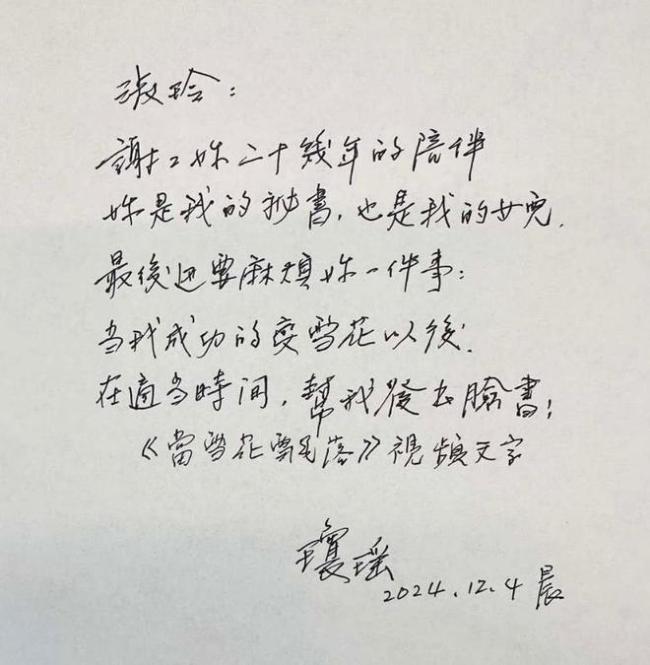 淑玲：
謝謝妳二十幾年的陪伴
妳是我的秘書，也是我的女兒.
最後还要麻煩妳一件事：
当我成功的变雪花以後.
在適当時间，幫我發出臉書；
《當雪花飄落》視頻文字
瓊瑤
2024.12.4晨